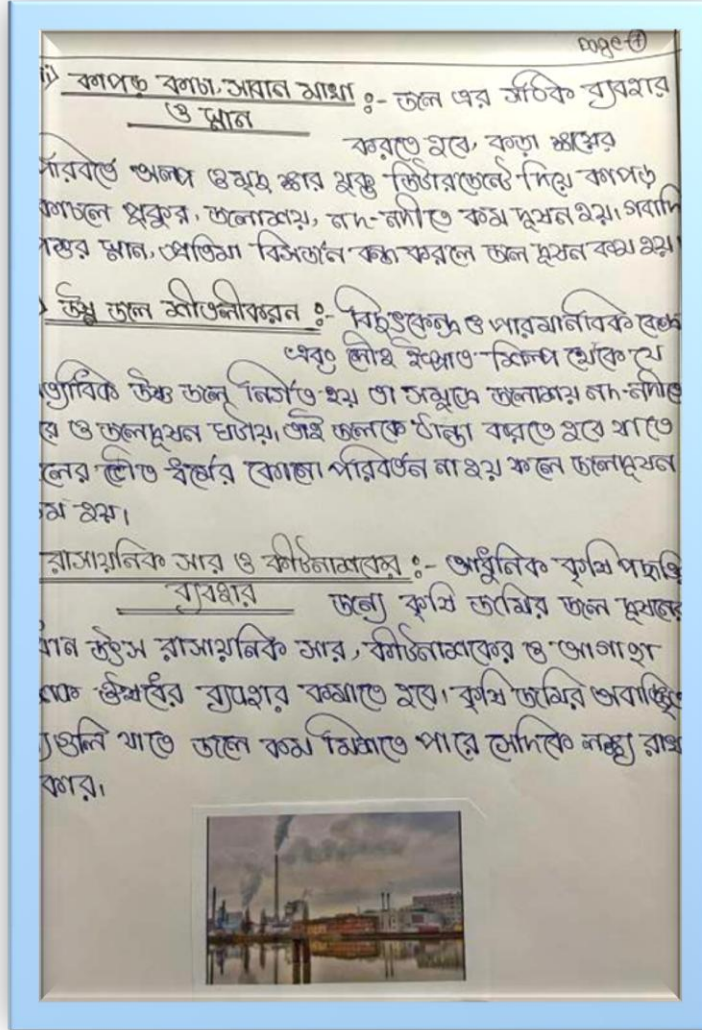 page-⑦
ii) কাপড় কাচা, সাবান মাখা :- জলে এর সঠিক ব্যবহার
ও স্নান
করতে হবে, কড়া ক্ষারের
পরিবর্তে অল্প ও মৃদু ক্ষার যুক্ত ডিটারজেন্ট দিয়ে কাপড়
কাচলে পুকুর, জলাশয়, নদ-নদীতে কম দূষন হয়। গবাদি
পশুর স্নান, প্রতিমা বিসর্জন বন্ধ করলে জল দূষন কম হয়।
) উষ্ণ জলে শীতলীকরন :- বিদ্যুৎকেন্দ্র ও পারমানবিক কেন্দ্র
এবং লৌহ ইস্পাত শিল্প থেকে যে
ত্যাধিক উষ্ণ জল নির্গত হয় তা সমুদ্রে জলাশয় নদ-নদীতে
রে ও জলদূষন ঘটায়। তাই জলকে ঠান্ডা করতে হবে যাতে
লের ভৌত ধর্মের কোনো পরিবর্তন না হয় ফলে জলদূষন
ম হয়।
রাসায়নিক সার ও কীটনাশকের :- আধুনিক কৃষি পদ্ধতি
ব্যবহার
জন্যে কৃষি জমির জল দূষনের
ধান উৎস রাসায়নিক সার, কীটনাশকের ও আগাছা
শক ঔষধের ব্যবহার কমাতে হবে। কৃষি জমির অবাঞ্ছিত
গুলি যাতে জলে কম মিশতে পারে সেদিকে লক্ষ্য রাখা
কার।